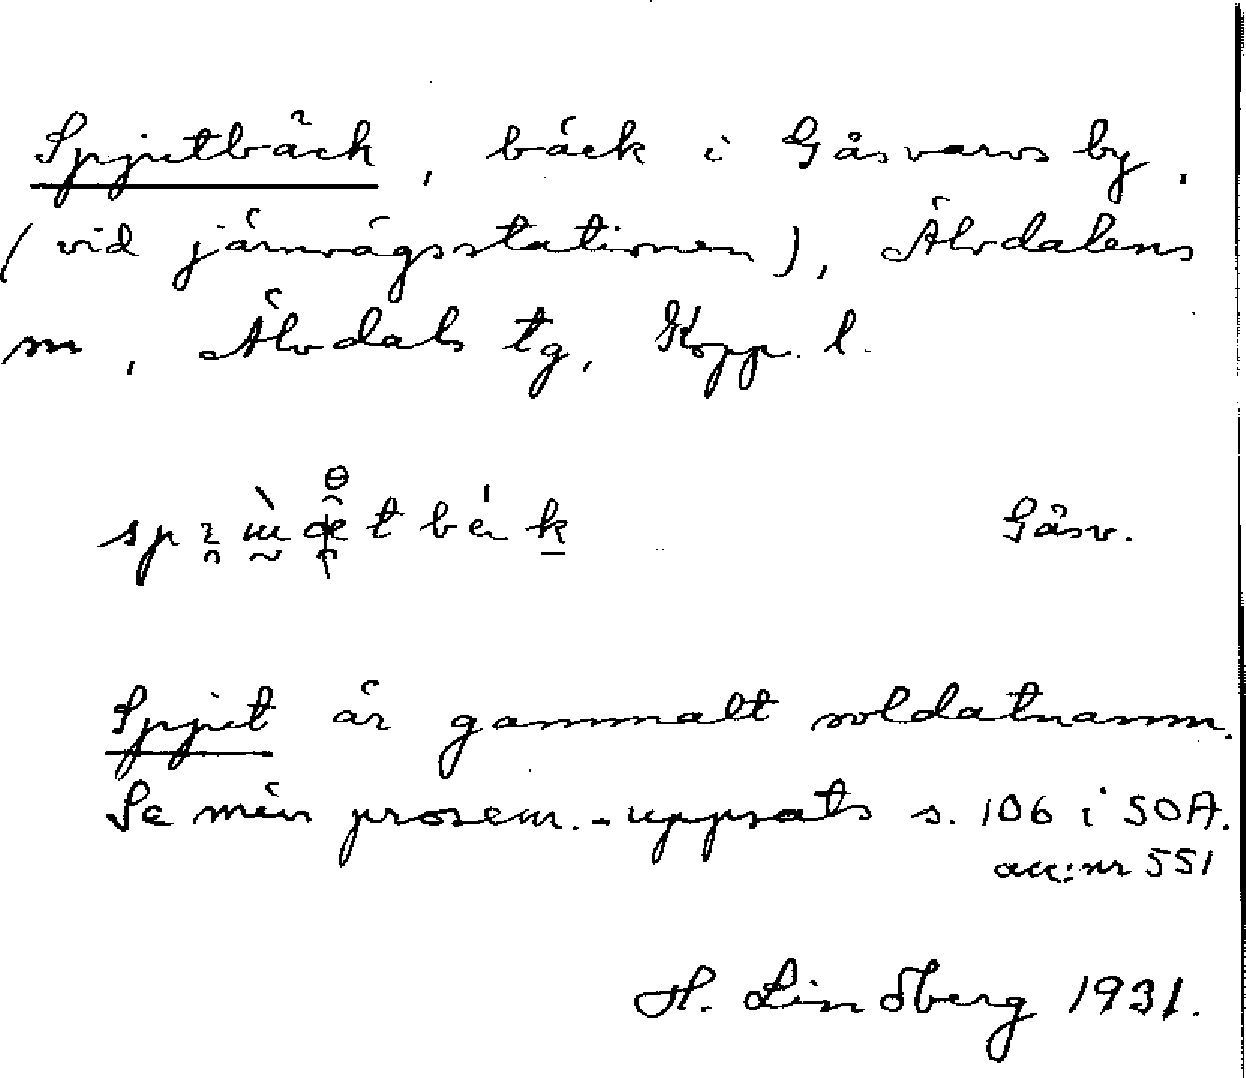 Spjutbäck, bäck i Gåsvarvs by,
(vid järnvägsstationen), Älvdalens
m, Älvdals tg, Kopp. l.
Gåsv.
Spjut är gammalt soldatnamn.
Se min prosem.-uppsats s. 106 i SOA.
acc:nr 551
H. Lindberg 1931.